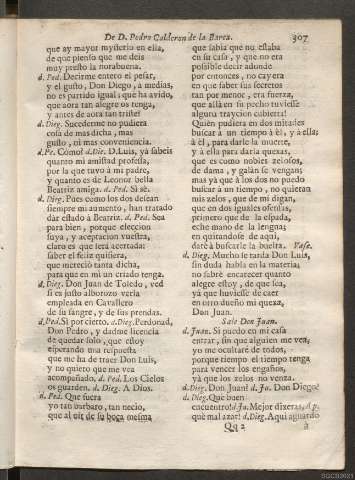 De D. Pedro Calderon de la Barca. 307
que ay mayor mysterio en ella,
de que pienso que me deis
muy presto la norabuena.
d. Ped. Decirme entero el pesar,
y el gusto, Don Diego, a medias,
no es partido igual; què ha avido,
que aora tan alegre os tenga,
y antes de aora tan triste?
d. Dieg. Sucederme no pudiera
cosa de mas dicha, mas
gusto, ni mas conveniencia.
d. Pe. Còmo? d. Die. D. Luis, yà sabeis
quanto mi amistad professa,
por la que tuvo à mi padre,
y quanto es de Leonor bella
Beatriz amiga. d. Ped. Sì sè.
d. Dieg. Pues como los dos desean
siempre mi aumento, han tratado
dàr estado à Beatriz. d. Ped. Sea
para bien, porque eleccion
suya, y aceptacion vuestra,
claro es que serà acertada:
saber el feliz quisiera,
que mereciò tanta dicha,
para que en mì un criado tenga.
d. Dieg. Don Juan de Toledo, ved
si es justo alborozo verla
empleada en Cavallero
de su sangre, y de sus prendas.
d. Ped. Sì por cierto. d. Dieg. Perdonad,
Don Pedro, y dadme licencia
de quedar solo, que estoy
esperando una respuesta
que me ha de traer Don Luis,
y no quiero que me vea
acompañado. d. Ped. Los Cielos
os guarden. d. Dieg. A Dios.
d. Ped. Que fuera
yo tan barbaro, tan necio,
que al oìr de su boca mesma
que sabìa que no estaba
en su casa, y que no era
possible decir adonde
por entonces, no cayera
en que saber sus secretos
tan por menor, era fuerza,
que allà en su pecho tuviesse
alguna traycion cubierta!
Quièn pudiera en dos mitades
buscar à un tiempo à èl, y à ella;
à èl, para darle la muerte,
y à ella para darla quexas,
que es como nobles zelosos,
de dama, y galàn se vengan;
mas yà que à los dos no puedo
buscar à un tiempo, no quieran
mis zelos, que de mì digan,
que en dos iguales ofensas,
primero que de la espada,
eche mano de la lengua;
en quitandose de aqui,
darè à buscarle la buelta. Vase.
d. Dieg. Mucho se tarda Don Luis,
sin duda habla en la materia;
no sabrè encarecer quanto
alegre estoy, de que sea,
yà que huviesse de caer
en otro dueño mi quexa,
Don Juan.
Sale Don Juan.
d. Juan. Si puedo en mi casa
entrar, sin que alguien me vea,
yo me ocultarè de todos,
porque tiempo el tiempo tenga
para vencer los engaños,
yà que los zelos no venza.
d. Dieg. Don Juan? d. Ju. Don Diego?
d. Dieg. Què buen
encuentro! d. Ju. Mejor dixeras, Ap.
què mal azar! d. Dieg. Aqui aguardo
Qq 2 à
SGCB2021